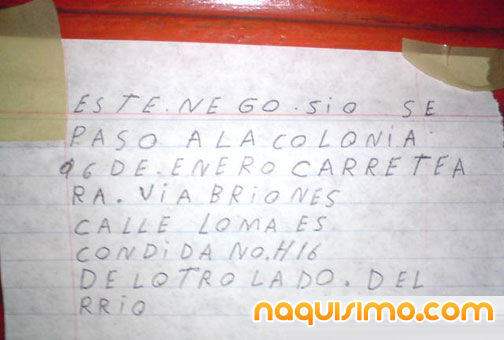 ESTE.NEGO.SiO SE
PASO A LA COLONiA
06 DE.ENERO CARRETEA
RA.ViA BRiONES
CALLE LOMA ES
CONDiDA NO.H16
DELOTRO LADO.DEL
RRiO
naquisimo.com